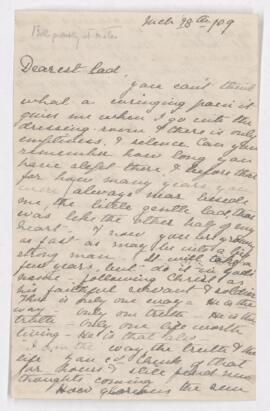 March 28th /09
Dearest lad,
you can't think
what a wringing pain it
gives me when I go into the
dressing-room & there is only
emptiness & silence Can you
remember how long you
have slept there, & before that
for how many years you
were always near beside
me, the little gentle lad that
was like the other half of my
heart - Now you be growing
as fast as may be into a
strong man - It will take a
few years, but do it in God's
hand, following Christ as
his faithful servant & soldier
There is only one way - He is the
way - only one truth - He is the
truth - only one life worth
living - He is that also -
I am the way the truth & the
life you cd think of that
for hours & still find new
thoughts coming
How glorious the sun